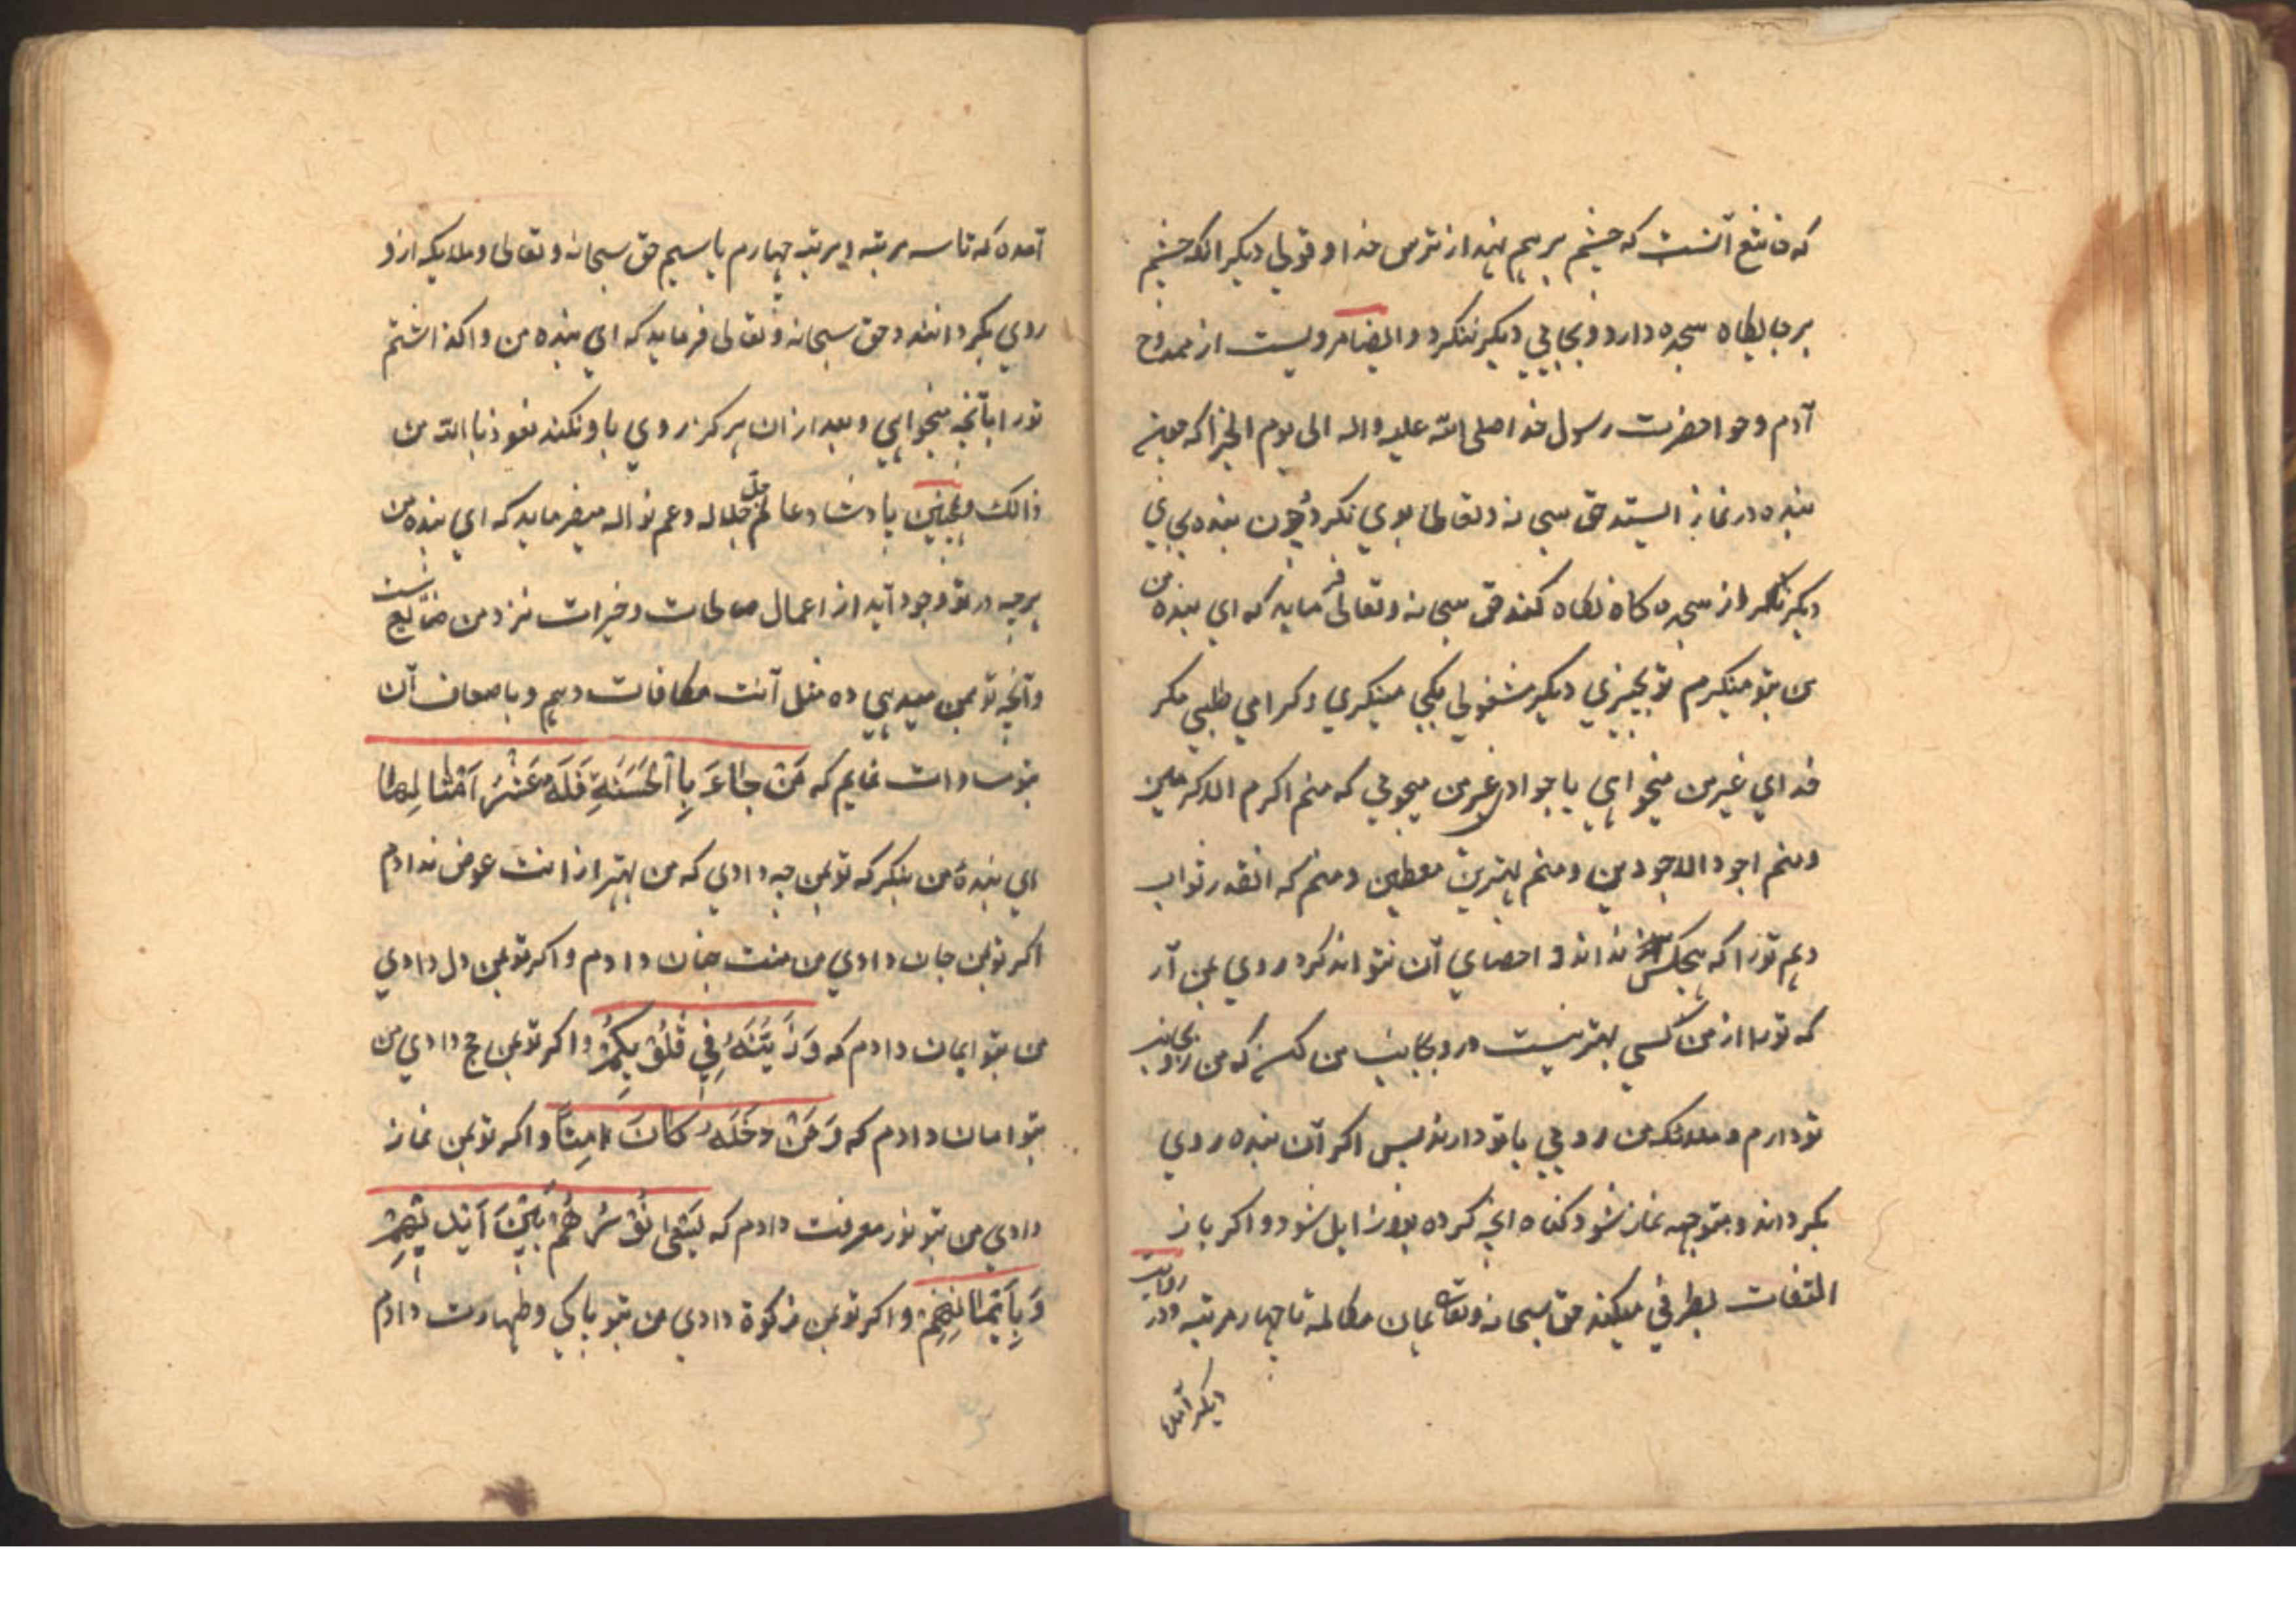 که خاشع آنست که چشم بر هم نهد از ترس خدا و قولی دیکر انکه چشم
بر جایکاه سجده دارد و بجایی دیکر ننکرد و ایضا مرویست از ممدوح
آدم و حوا حضرت رسول خدا صلی الله علیه واله الی یوم الجزا که چون
بنده در نماز ایستد حق سبحانه وتعالی بوی نکرد و چون بنده بجای
دیکر نکرد از سجده کاه نکاه کند حق سبحانه وتعالی فرماید که ای بنده من
من بتو مینکرم تو بچیزی دیکر مشغولی بکی مینکری و کرا می طلبی مکر
خدای غیر من میخواهی یا جوادی غیر من میجوئی که منم اکرم الاکرمین
ومنم اجود الاجودین ومنم بهترین معطین ومنم که انقدر ثواب
دهم تورا که هیچکس نداند و احصای آن نتواند کرد روی بمن آر
که تورا از من کسی بهتر نیست در و بجانب من کن که من رو بجانب
تو دارم و ملائکه من روی با تو دارند پس اکر آن بنده روی
بکرداند و متوجه نماز شود کناه انچه کرده بود زایل شود و اکر باز
التفات بطرفی میکند حق سبحانه وتعالی همان مکالمه تا چهار مرتبه ودر روایت
دیکر آمده
آمده که تا سه مرتبه و مرتبه چهارم یا سیم حق سبحانه وتعالی وملایکه ازو
روی بکردانند و حق سبحانه وتعالی فرماید که ای بنده من واکذاشتم
تورا بآنچه میخواهی وبعد از ان هرکز روی باو نکند نعوذ باالله من
ذالک وهمچنین پادشاه عالم جل جلاله وعم نواله میفرماید که ای بنده من
هرچه در تو وجود آید از اعمال صالحات وخیرات نزد من ضایع نیست
وآنچه تو بمن میدهی ده مثل آنت مکافات دهم وباضعاف آن
بتو مساوات نمایم که مَنْ جَاءَ بِاَالْحَسَنَةِ فَلَهُ عَشْرُ اَمْثَالِهَا
ای بندهٔ من بنکر که تو بمن چه دادی که من بهتر از انت عوض ندادم
اکر تو بمن جان دادی من بتو جنان دادم و اکر تو بمن دل دادی
من بتو ایمان دادم که وَزَیَّنَهُ فِی قُلُوْبِکُمْ واکر تو بمن حج دادی من
بتو امان دادم که وَمَنْ دَخَلَهُ کَانَ اٰمِنًا و اکر تو بمن نماز
دادی من بتو نور معرفت دادم که یَسْعٰی نُوْرُهُمْ بَیْنَ اَیْدِیْهِمْ
وَبِاَیْمَانِهِمْ و اکر تو بمن زکوة دادی من بتو پاکی وطهارت دادم